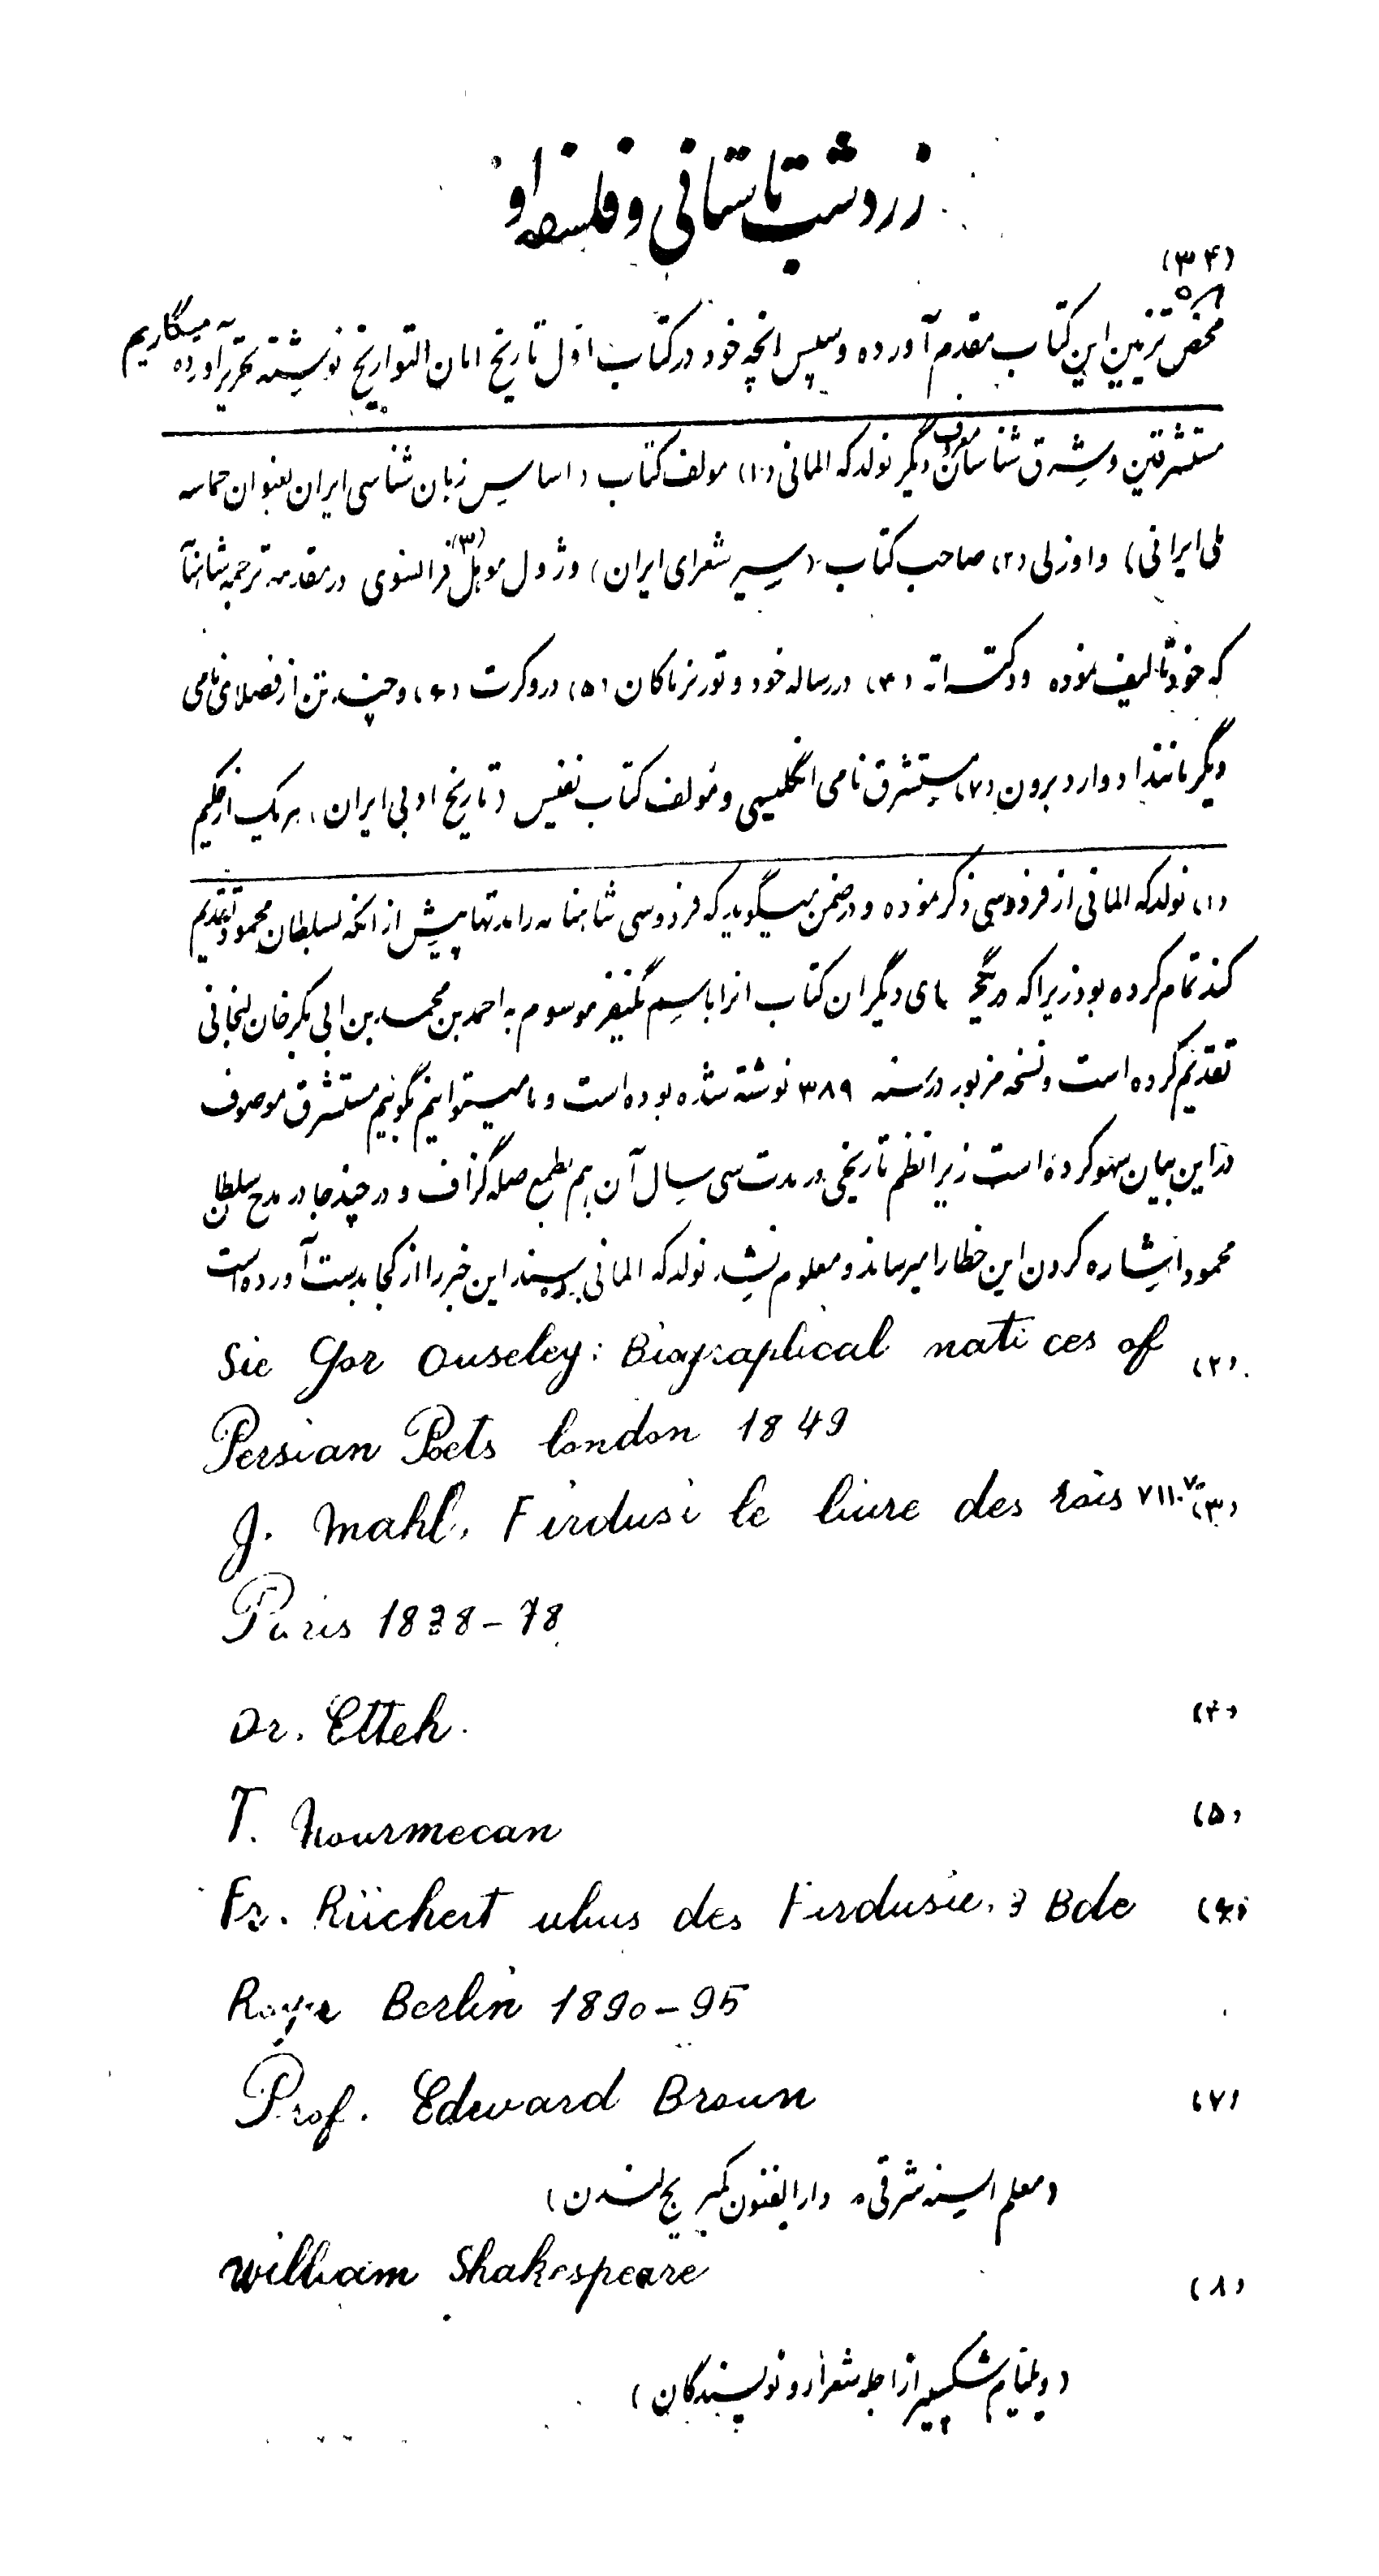 زردشت باستانی و فلسفه او
(۳۴)
محض تزیین این کتاب مقدم آورده و سپس انچه خود در کتاب اول تاریخ امان التواریخ نوشته بتحریر آورده میگاریم
مستشرقین و شرق شناسان معروف دیگر نولدکه المانی (۱) مولف کتاب (اساس زبان شناسی ایران بعنوان حماسه
ملی ایرانی) و اوزلی (۲) صاحب کتاب (سیر شعرای ایران) و ژول موهل (۳) فرانسوی در مقدمه ترجمه شاهنا
که خود تالیف نموده و دکتر اته (۴) در رساله خود و تورنرماکان (۵) در وکرت (۶) و چند تن از فضلای نامی
دیگر مانند ادوارد برون (۷) مستشرق نامی انگلیسی و مولف کتاب نفیس (تاریخ ادبی ایران) هر یک از حکیم
(۱) نولدکه المانی از فردوسی ذکر نموده و در ضمن میگوید که فردوسی شاهنامه را مدتها پیش از انکه بسلطان محمود تقدیم
کند تمام کرده بود زیرا که در یکی جای دیگر ان کتاب انرا باسم یکنفر موسوم به احمد بن محمد بن ابی بکر خان لنجانی
تقدیم کرده است و نسخه مزبور در سنه ۳۸۹ نوشته شده بوده است و ما میتوانیم بگوئیم مستشرق موصوف
در این بیان سهو کرده است زیرا نظم تاریخی در مدت سی سال آن هم بطمع صله گزاف و در چند جا در مدح سلطان
محمود اشاره کردن این خطا را میرساند و معلوم نشد نولدکه المانی بچه سند این خبر را از کجا بدست آورده است
(۲) Sie Gor Ouseley: Biographical natices of
Persian Poets london 1849
(۳) J. Mahl, Firdusi le livre des rois VII.V.
Paris 1838-78
(۴) Dr. Etteh.
(۵) T. Nourmecan
(۶) Fr. Rückert ubus des Firdusie, 3 Bde
Berlin 1890-95
(۷) Prof. Edward Broun
(معلم السنه شرقی در دارالفنون کمبریج لندن)
(۸) William Shakespeare
(ویلیام شکسپیر از اجله شعرا و نویسندگان)